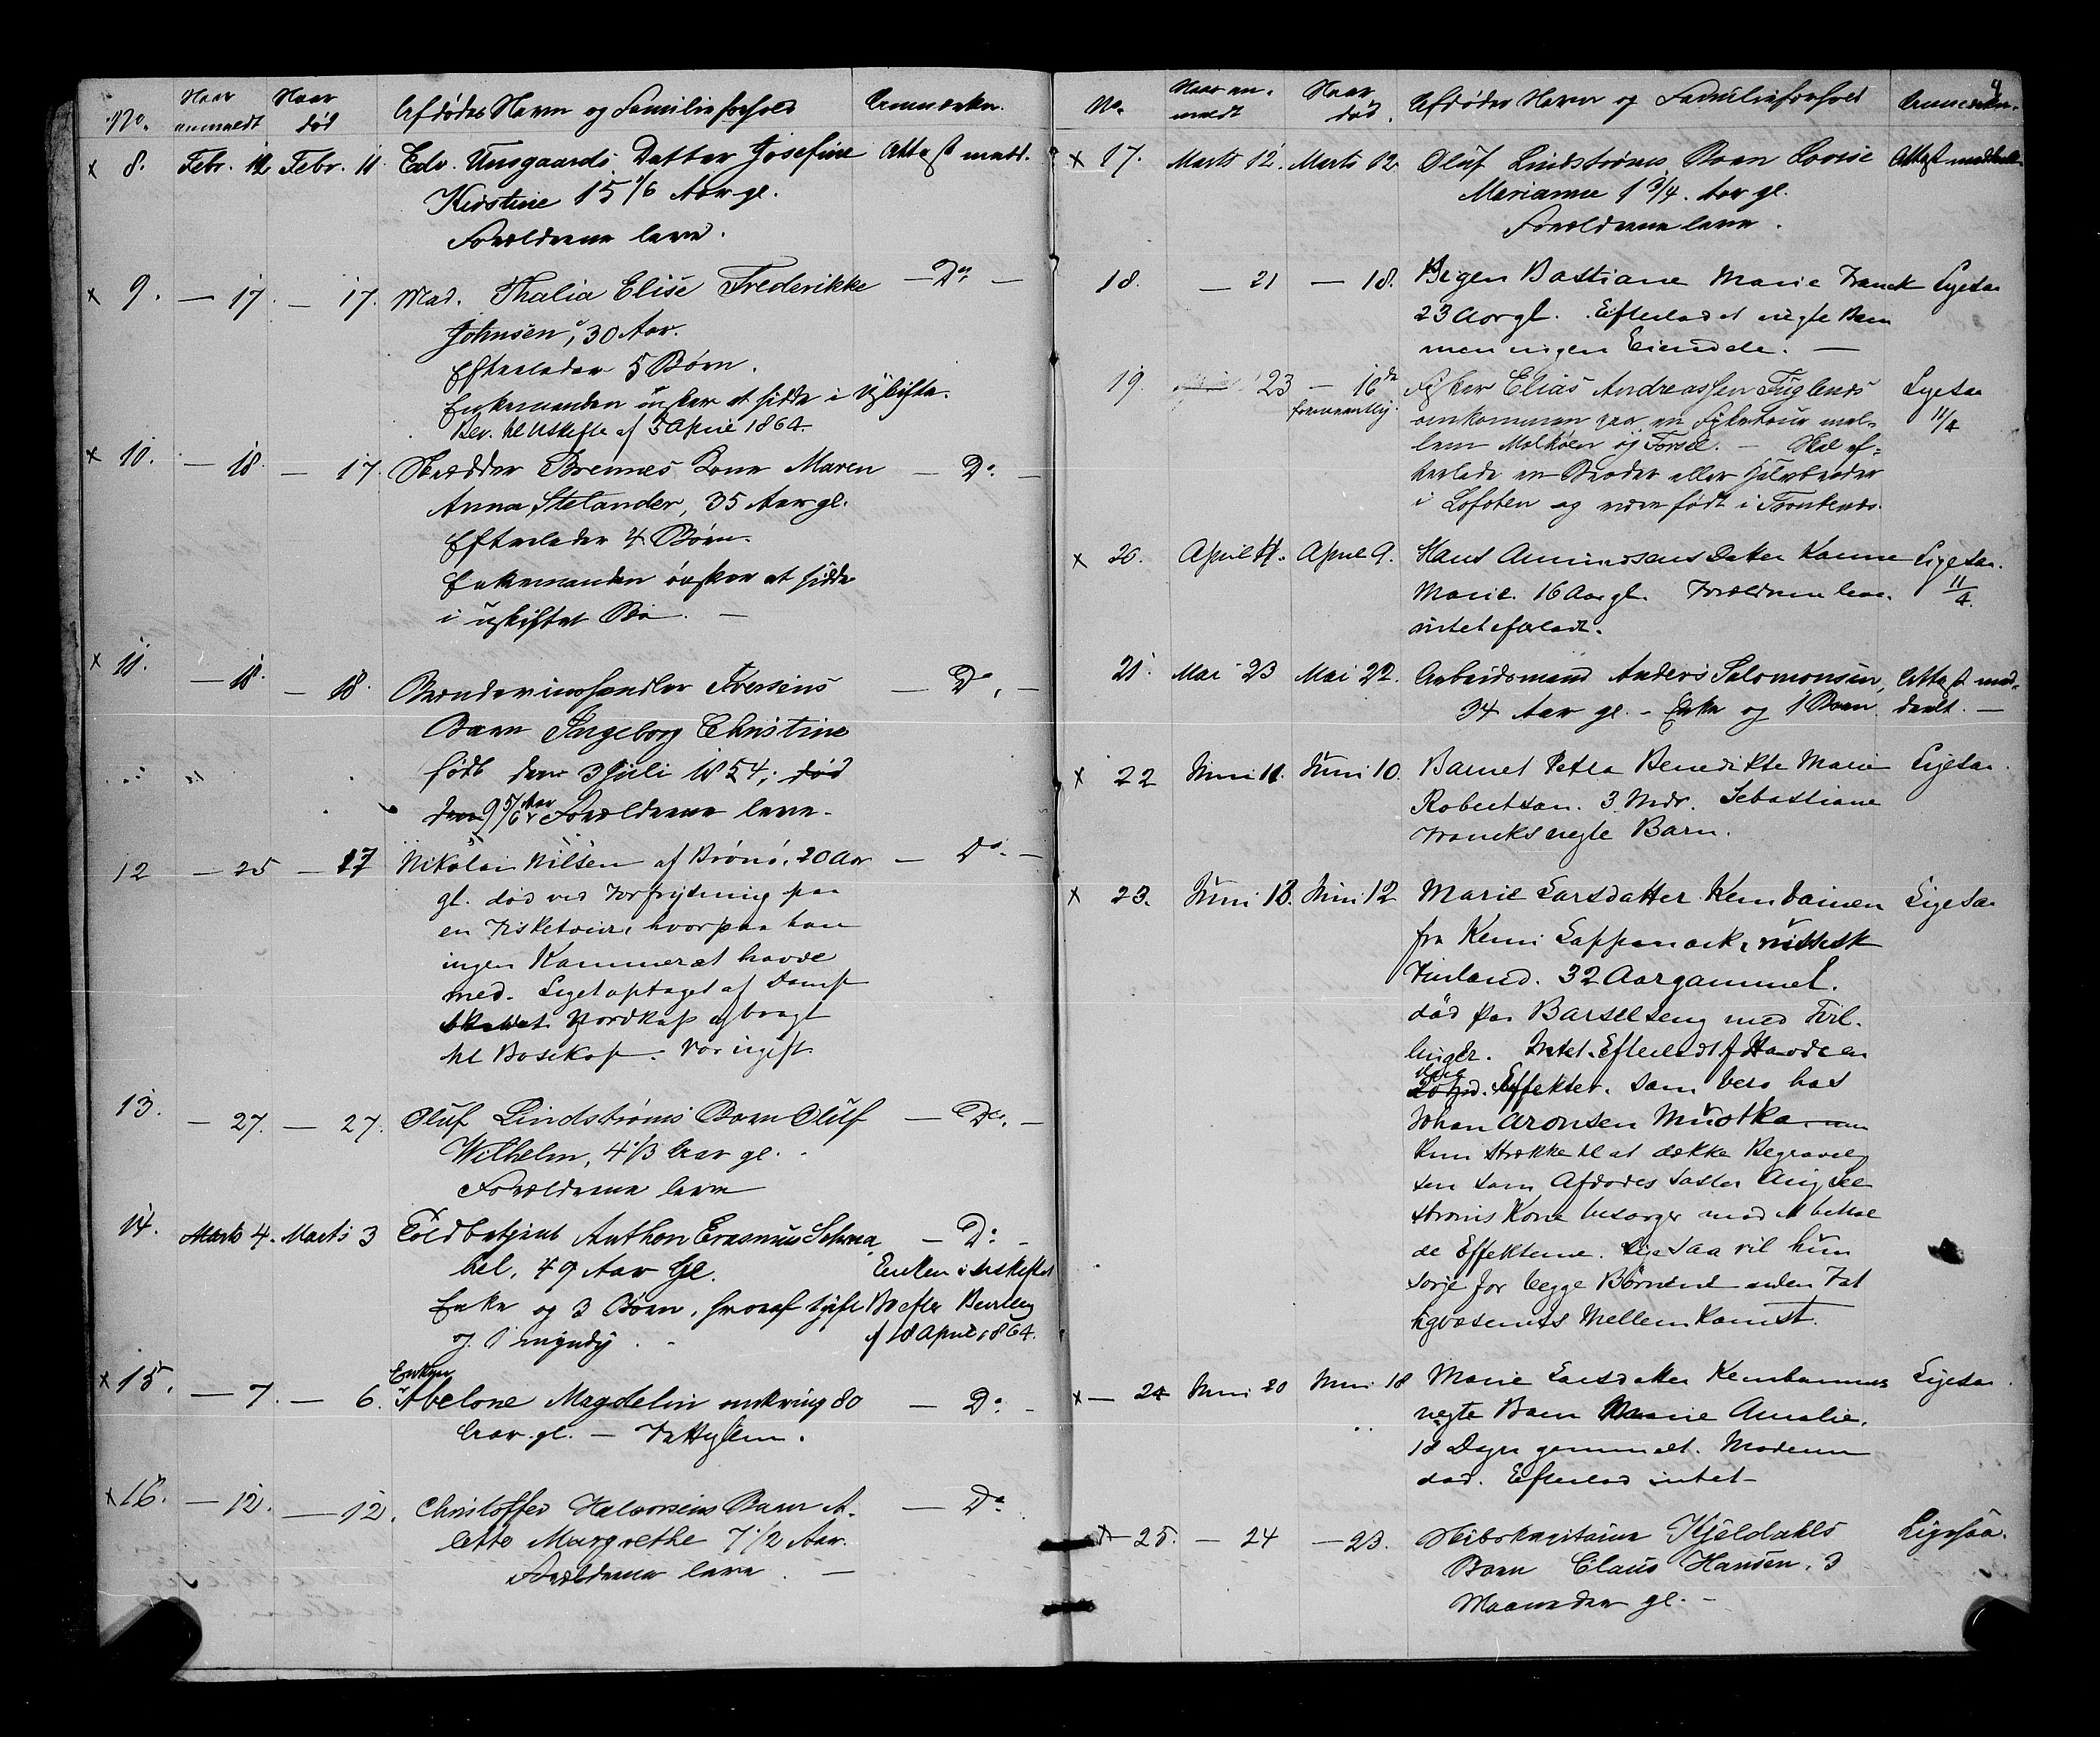 No. Naar anmeldt Naar død Afdødes Navn og Familieforhold Anmærkn.
x 8. Febr. 12 Febr. 11 Edv. Unsgaards Datter Josefine Attest medd.
Kirstine 15 1/6 Aar gl.
Forældrene leve.
x 9. — 17. — 17. Mad. Thalia Elise Frederikke — Do. —
Johnsen, 30 Aar.
Efterlader 5 Børn.
Enkemanden ønsker at sidde i Uskifte.
Bev. til Uskifte af 5 April 1864.
x 10. — 18. — 17. Skrædder Bremnes Kone Maren — Do. —
Anna Stelander, 35 Aar gl.
Efterlader 4 Børn.
Enkemanden ønsker at sidde
i uskiftet Bo. —
x 11. — 18. — 18. Brændeviinshandler Iversens — Do. —
Barn Ingeborg Christine
født den 3 Juli 1854; død
den 9 5/6 Aar Forældrene leve.
12 — 25 — 17 Nikolai Nilsen af Brønø, 20 Aar — Do. —
gl. død ved Forfrysning paa
en Fisketour, hvorpaa han
ingen Kammerat havde
med. Liget optaget af Damp
skibet Nordkap og bragt
til Bosekop. Var ugift
13. — 27. — 27. Oluf Lindstrøms Barn Oluf — Do. —
Wilhelm, 4 1/3 Aar gl.
Forældrene leve
14. Marts 4. Marts 3 Toldbetjent Anthon Erasmus Schna — Do. —
bel, 49 Aar Gl. Enken i uskiftet
Enke og 3 Børn, hvoraf 1 gift Bo efter Bevilling
og 1 myndig. af 18 April 1864.
x 15. — 7. — 6. Enken Abelone Magdelin omkring 80 — Do. —
Aar gl. — Fattiglem.
x 16. — 12. — 12. Christoffer Halvorsens Barn A- — Do.
lette Margrethe 7 1/2 Aar.
Forældrene leve. —
No. Naar anmeldt Naar død. Afdødes Navn og Familieforhold Anmærkn.
x 17. Marts 12. Marts 12. Oluf Lindstrøms Barn Lovise Attest meddeelt
Marianne 1 3/4. Aar gl.
Forældrene leve.
18. — 21 — 18. Pigen Bastiane Marie Franck Ligesaa
23 Aar gl. Efterlod et uægte Barn
men ingen Eiendele. —
19. 23 — 16de Fisker Elias Andreassen Fuglenes Ligesaa
formeentlig omkommen paa en Fisketour mel- 11/4
lem Melkøen og Forsøl. — Skal ef-
terlade en Broder eller Halvbroder
i Lofoten og være født i Trondenæs.
x 20. April 11. April 9. Hans Amundsens Datter Hanne Ligesaa.
Marie. 16 Aar gl. Forældrene leve. 11/4.
intet efterladt.
21. Mai 23 Mai 22. Arbeidsmand Anders Salomonsen, Attest med-
34 Aar gl. - Enke og 1 Barn. deelt. —
x 22 Juni 11. Juni 10. Barnet Petra Benedikte Marie Ligesaa.
Robertson. 3 Mdr. Sebastiane
Francks uægte Barn.
x 23. Juni 13. Juni 12 Marie Larsdatter Kembainen Ligesaa
fra Kemi Lappmark, russisk
Finland. 32 Aar gammel.
død paa Barselseng med Tvil-
linger. Intet Efterladt Havde en
Effekter. som bero hos
Johan Aronsen Muotka
kun strække til at dække Begravel
sen som Afdødes Søster Ang
strøms Kone besørger mod at behol
de Effekterne. Ligesaa vil hun
sørge for begge Børnene uden Fat
tigvæsenets Mellemkomst.
x — 24 Juni 20 Juni 18 Marie Larsdatter Kembainens Ligesaa.
uægte Barn Marie Amalie.
18 Dage gammelt. Moderen
død. Efterlod intet —
x — 25. — 24 — 23. Skibskapitaine Kjeldahls Ligesaa.
Barn Claus Hansen, 3
Maaneder gl. —